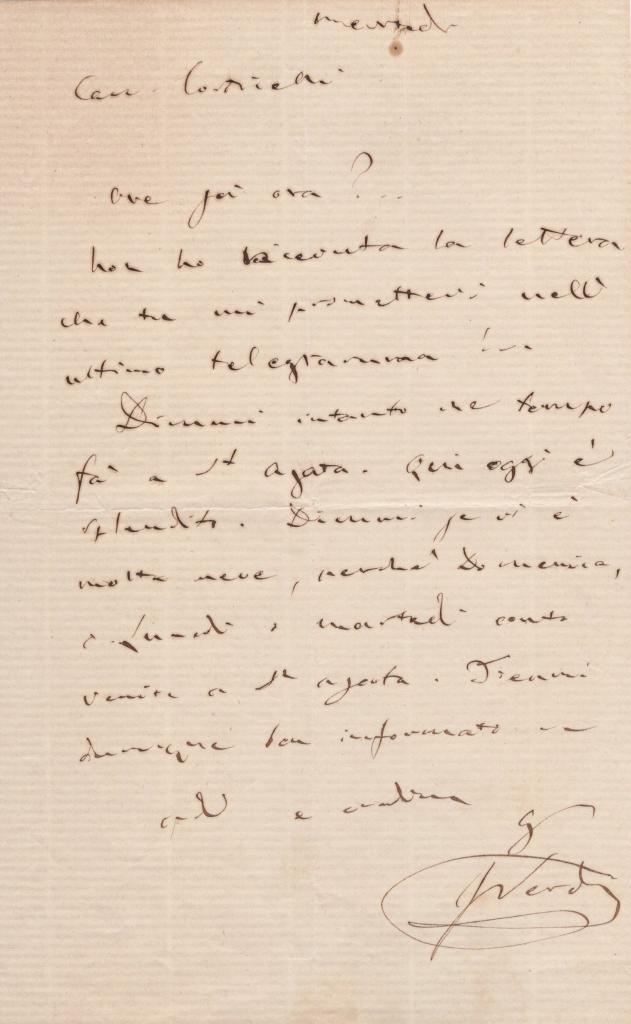 Mercoledì
Car. Corticelli
Ove sei ora ?...
Non ho ricevuta la lettera
che tu mi promettevi nell'
ultimo telegramma !...
Dimmi intanto che tempo
fà a St Agata. Qui oggi è
splendito. Dimmi se vi è
molta neve, perchè Domenica,
o Lunedì o martedì conto
venire a St Agata. Tienmi
dunque ben informato
e
G
Verdi